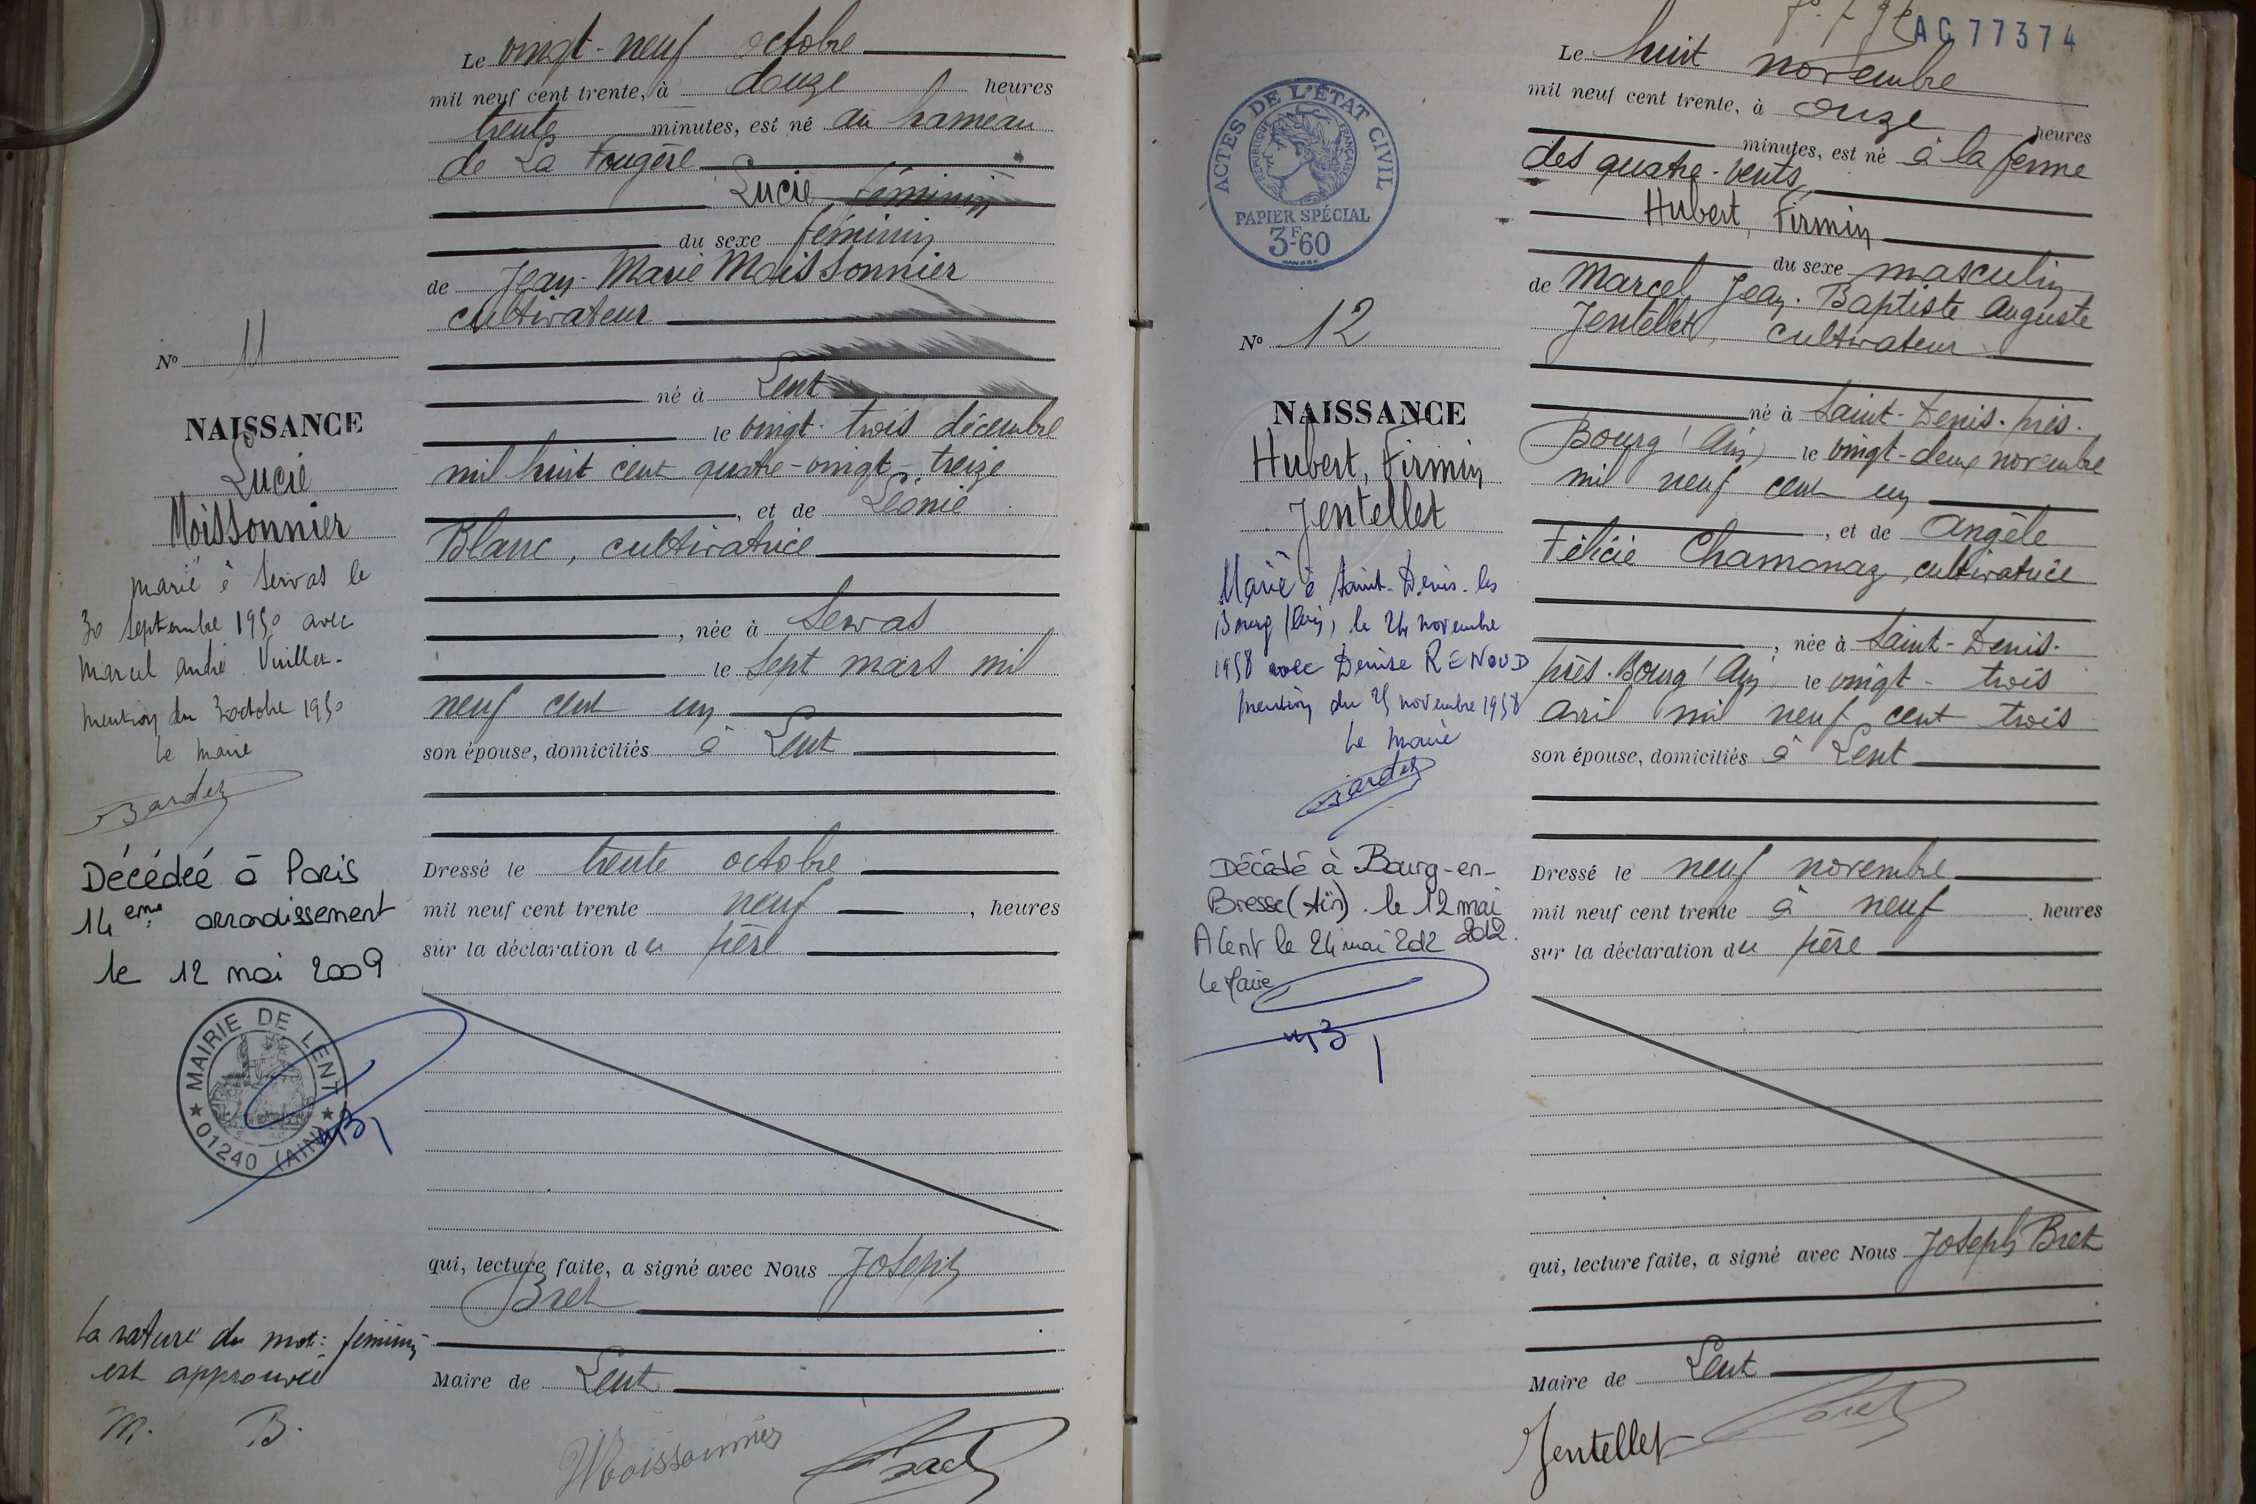 Le vingt-neuf octobre
mil neuf cent trente, à douze heures
trente minutes, est né au hameau
de La Fougère
Lucie féminin
du sexe féminin
de Jean-Marie Moissonnier
cultivateur
né à Lent
le vingt-trois décembre
mil huit cent quatre-vingt-treize
, et de Léonie
Blanc, cultivatrice
, née à Servas
le sept mars mil
neuf cent un
son épouse, domiciliés à Lent
Dressé le trente octobre
mil neuf cent trente neuf , heures
sur la déclaration du père
qui, lecture faite, a signé avec Nous Joseph
Bret
Maire de Lent
Moissonnier
Bret
N° 11
NAISSANCE
Lucie
Moissonnier
marié à Servas le
30 septembre 1950 avec
Marcel André
mention du 3 octobre 1950
le maire
Décédée à Paris
14 eme arrondissement
le 12 mai 2009
MAIRIE DE LENT
01240 (AIN)
La rature du mot: féminin
est approuvée
M. B.
AC 77374
ACTES DE L'ÉTAT CIVIL
RÉPUBLIQUE FRANÇAISE
PAPIER SPÉCIAL
3F-60
N° 12
NAISSANCE
Hubert, Firmin
Jentellet
Marié à Saint-Denis-les
Bourg (Ain), le 24 novembre
1958 avec Denise RENOUD
mention du 25 novembre 1958
Le Maire
Décédé à Bourg-en-
Bresse (Ain) le 12 mai
2012.
A Lent le 24 mai 2012
Le Maire
Le huit novembre
mil neuf cent trente, à onze heures
minutes, est né à la ferme
des quatre-vents
Hubert, Firmin
du sexe masculin
de Marcel Jean-Baptiste Auguste
Jentellet, cultivateur
né à Saint-Denis-près-
Bourg (Ain) le vingt-deux novembre
mil neuf cent un
, et de Angèle
Félicie Chamonaz, cultivatrice
, née à Saint-Denis-
près-Bourg (Ain) le vingt-trois
avril mil neuf cent trois
son épouse, domiciliés à Lent
Dressé le neuf novembre
mil neuf cent trente à neuf heures
sur la déclaration du père
qui, lecture faite, a signé avec Nous Joseph Bret
Maire de Lent
Jentellet
Bret